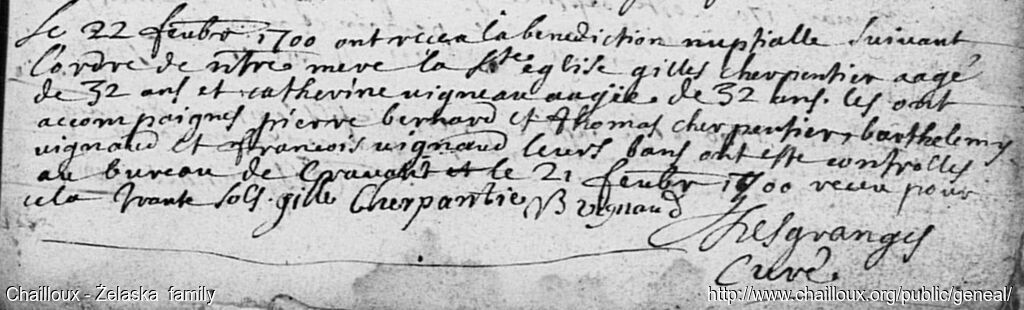 Le 22 feubr 1700 ont receu la benediction nuptialle suivant
l'ordre de nttre mere la Ste eglise gilles cherpentier aagé
de 32 ans et catherine vigneau aagée de 32 ans. les ont
accompaignes pierre bernard et thomas cherpentier, barthelemy
vignaud et francois vignaud leurs bans ont este controlles
au bureau de Cravant et le 21 feubr 1700 receu pour
cela trante sols. gille Cherpantie B Vignaud
Desgranges
Curé.
Chailloux - Żelaska family
http://www.chailloux.org/public/geneal/